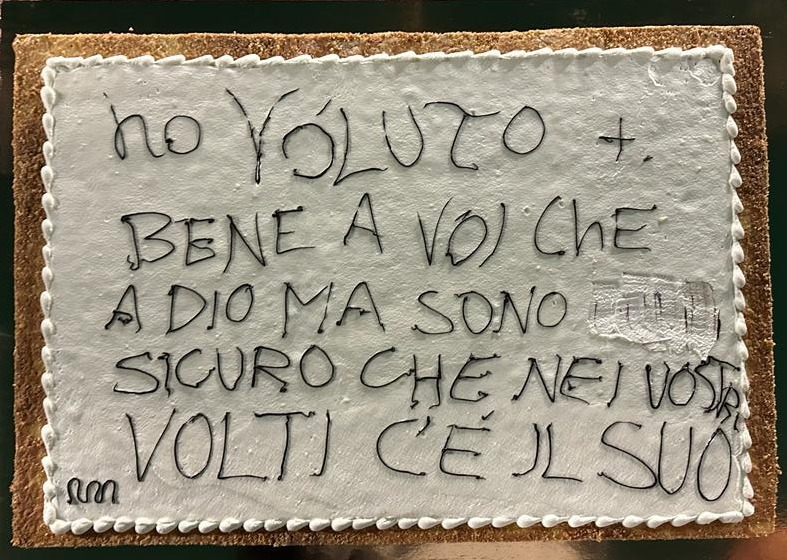 ho VOLUTO +
BENE A VOI ChE
A DIO MA SONO
SICURO CHE NEI VOSTRI
VOLTI C'É IL SUO